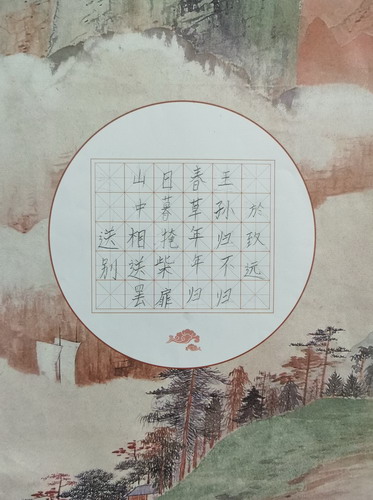 送别
山中相送罢
日暮掩柴扉
春草年年归
王孙归不归
於致远